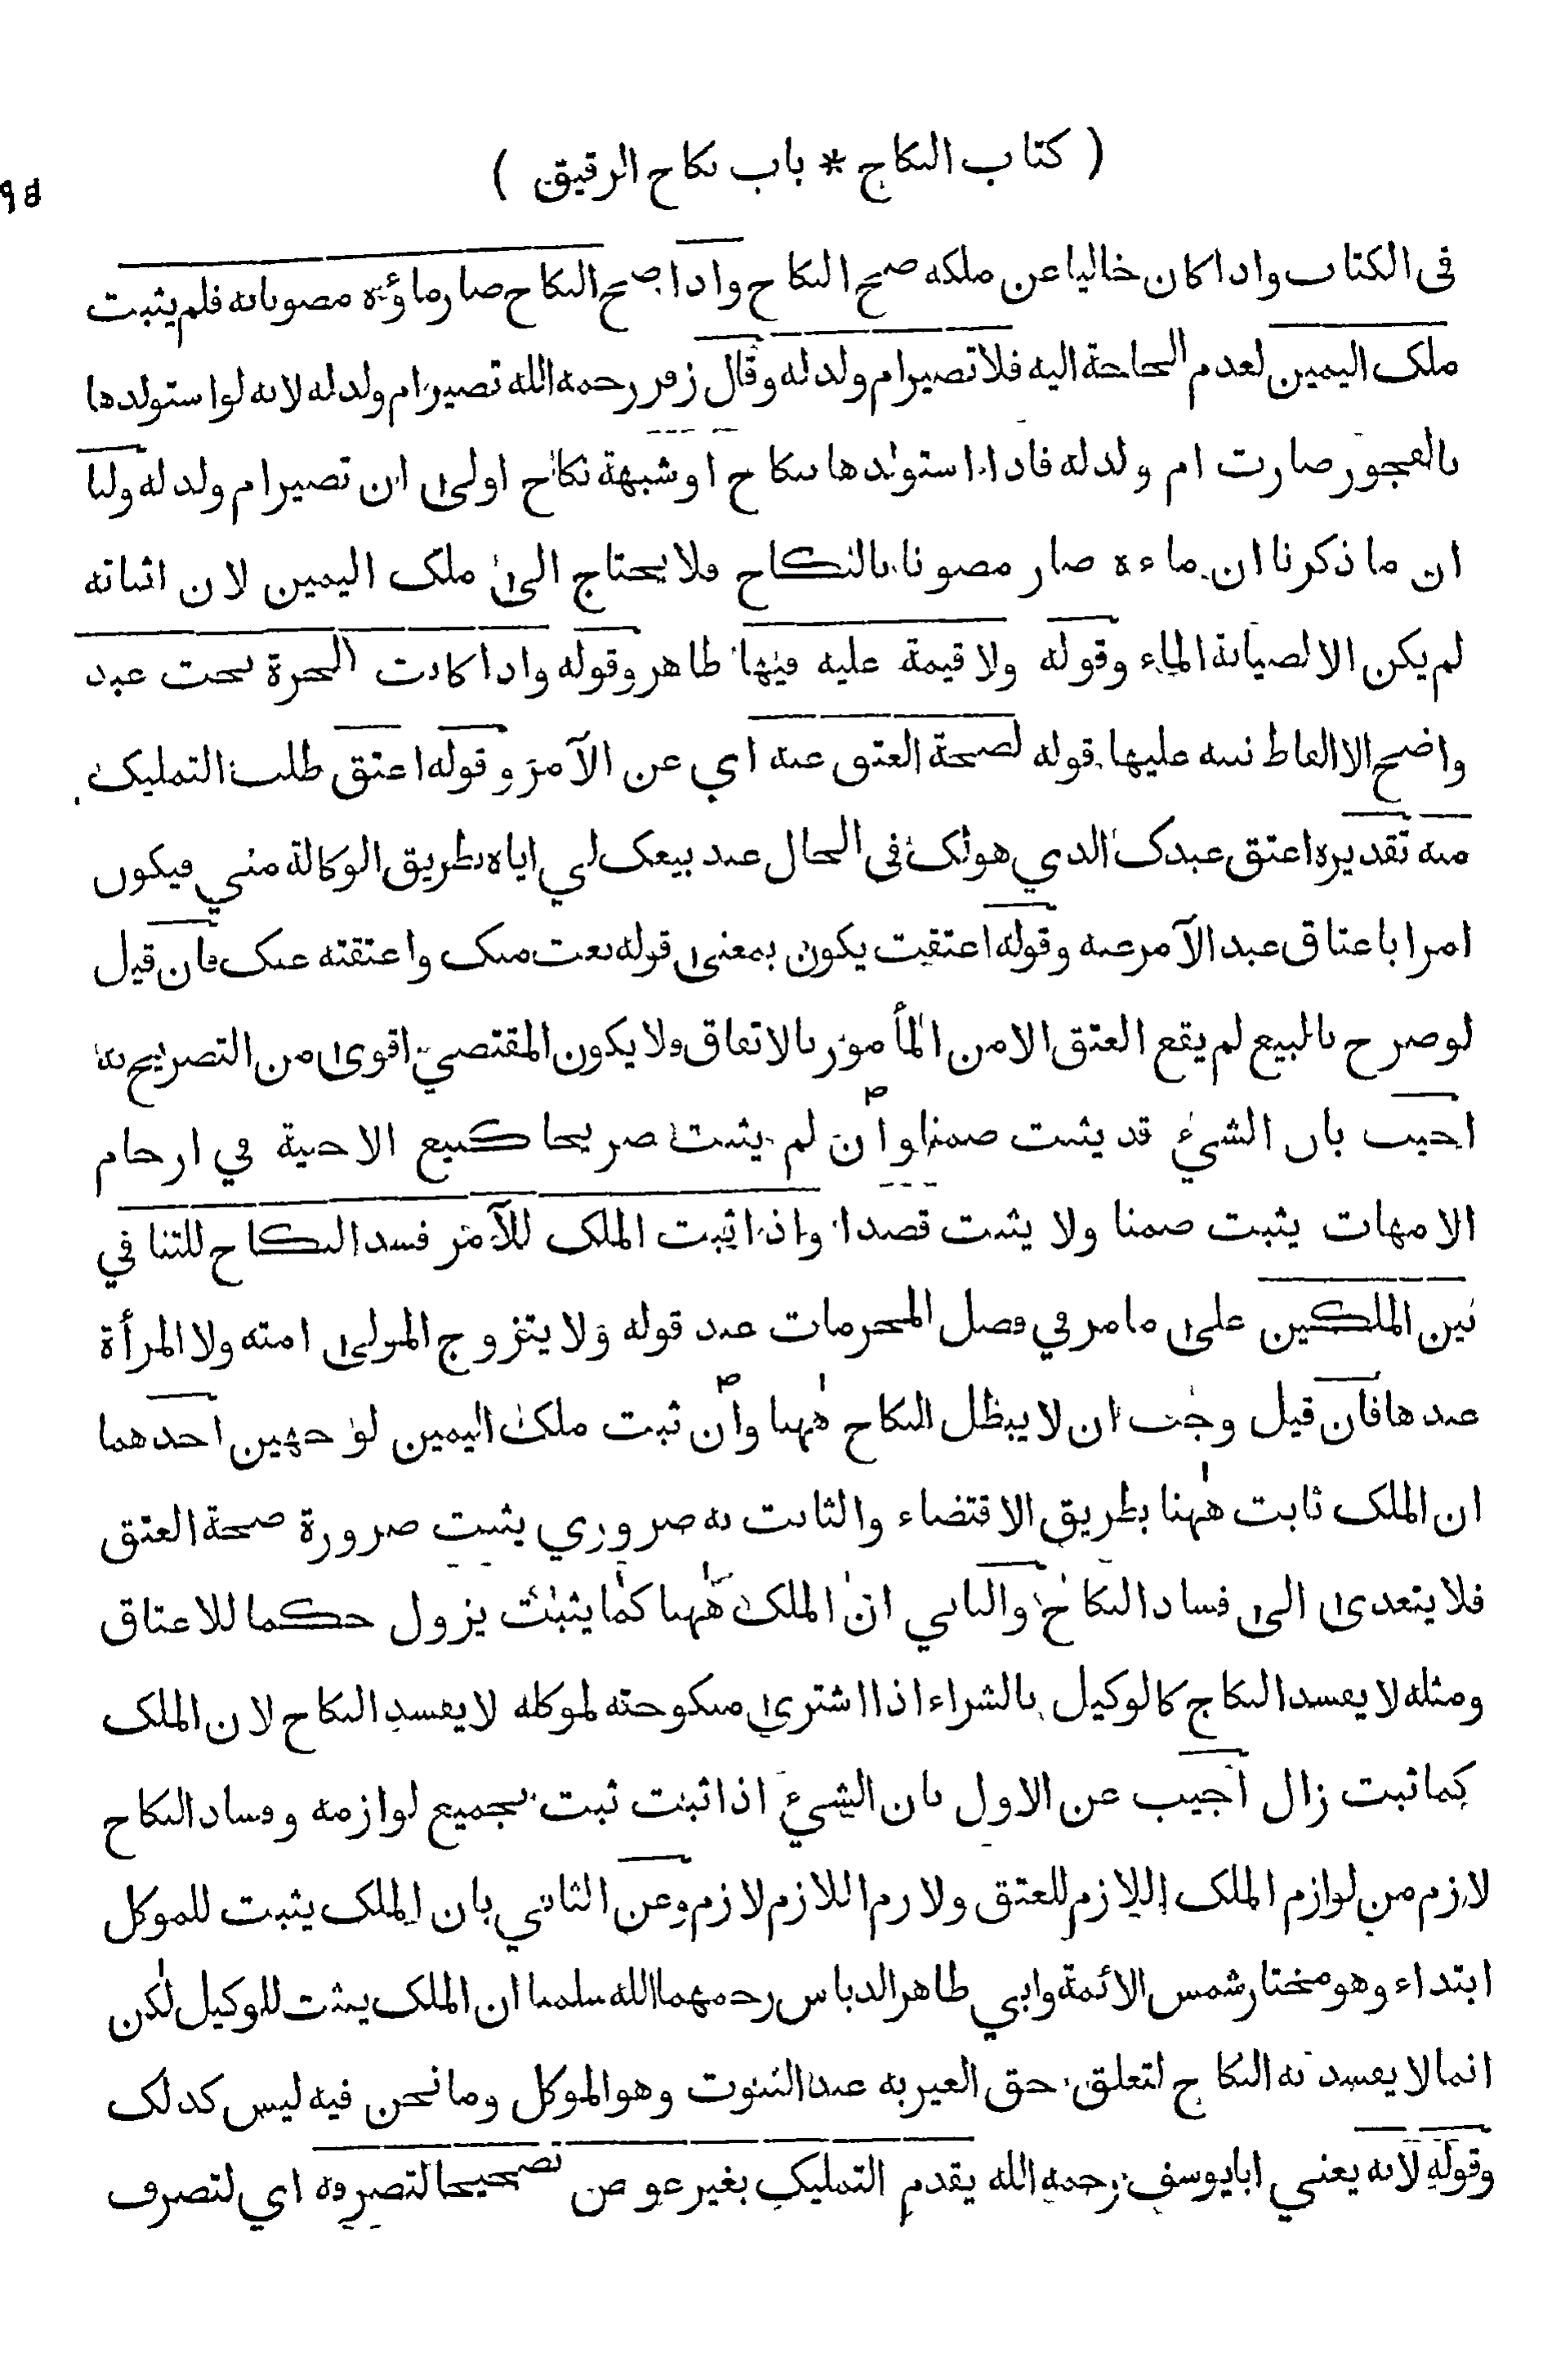 ( كتاب النكاح * باب نكاح الرقيق )
٩٥
فى الكتاب واذا كان خاليا عن ملكه صح النكاح واذا صح النكاح صار ماؤه مصونا به فلم يثبت
ملك اليمين لعدم الحاجة اليه فلا تصير ام ولد له وقال زفر رحمه الله تصير ام ولد له لانه لو استولدها
بالفجور صارت ام ولد له فاذا استولدها بنكاح او شبهة نكاح اولى ان تصير ام ولد له ولنا
ان ما ذكرنا ان ماءه صار مصونا بالنكاح فلا يحتاج الى ملك اليمين لان اثباته
لم يكن الا لصيانة الماء وقوله ولا قيمة عليه فيها ظاهر وقوله واذا كانت الحرة تحت عبد
واضح الا الفاظ ننبه عليها قوله لصحة العتق عنه اي عن الآمر وقوله اعتق طلب التمليك
منه تقديره اعتق عبدك الذي هو لك فى الحال عند بيعك لي اياه بطريق الوكالة مني فيكون
امرا باعتاق عبد الآمر عنه وقوله اعتقت يكون بمعنى قوله بعت منك واعتقته عنك فان قيل
لو صرح بالبيع لم يقع العتق الا من المأمور بالاتفاق ولا يكون المقتضي اقوى من التصريح به
اجيب بان الشيء قد يثبت ضمنا وان لم يثبت صريحا كبيع الاجنة في ارحام
الامهات يثبت ضمنا ولا يثبت قصدا واذا ثبت الملك للآمر فسد النكاح للتنافي
بين الملكين على ما مر في فصل المحرمات عند قوله ولا يتزوج المولى امته ولا المرأة
عبدها فان قيل وجب ان لا يبطل النكاح ههنا وان ثبت ملك اليمين لوجهين احدهما
ان الملك ثابت ههنا بطريق الاقتضاء والثابت به ضروري يثبت ضرورة صحة العتق
فلا يتعدى الى فساد النكاح والثاني ان الملك ههنا كما يثبت يزول حكما للاعتاق
ومثله لا يفسد النكاح كالوكيل بالشراء اذا اشترى منكوحته لموكله لا يفسد النكاح لان الملك
كما ثبت زال اجيب عن الاول بان الشيء اذا ثبت ثبت بجميع لوازمه وفساد النكاح
لازم من لوازم الملك اللازم للعتق ولازم اللازم لازم وعن الثاني بان الملك يثبت للموكل
ابتداء وهو مختار شمس الائمة وابي طاهر الدباس رحمهما الله سلمنا ان الملك يثبت للوكيل لكن
انما لا يفسد به النكاح لتعلق حق الغير به عند الثبوت وهو الموكل وما نحن فيه ليس كذلك
وقوله لانه يعني ابا يوسف رحمه الله يقدم التمليك بغير عوض تصحيحا لتصرفه اي لتصرف